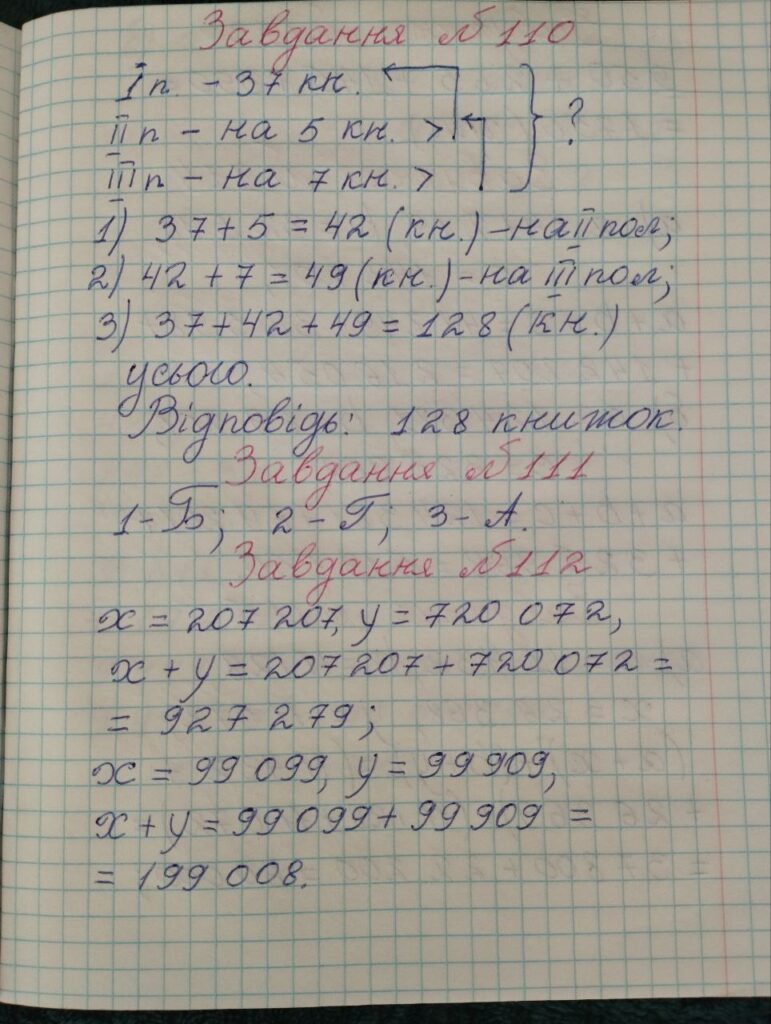 Завдання №110
I п. - 37 кн.
II п - на 5 кн. >
III п - на 7 кн. >
?
1) 37 + 5 = 42 (кн.) - на II пол;
2) 42 + 7 = 49 (кн.) - на III пол;
3) 37 + 42 + 49 = 128 (кн.)
усього.
Відповідь: 128 книжок.
Завдання №111
1 - Б; 2 - Г; 3 - А.
Завдання №112
x = 207 207, y = 720 072,
x + y = 207 207 + 720 072 =
= 927 279;
x = 99 099, y = 99 909,
x + y = 99 099 + 99 909 =
= 199 008.